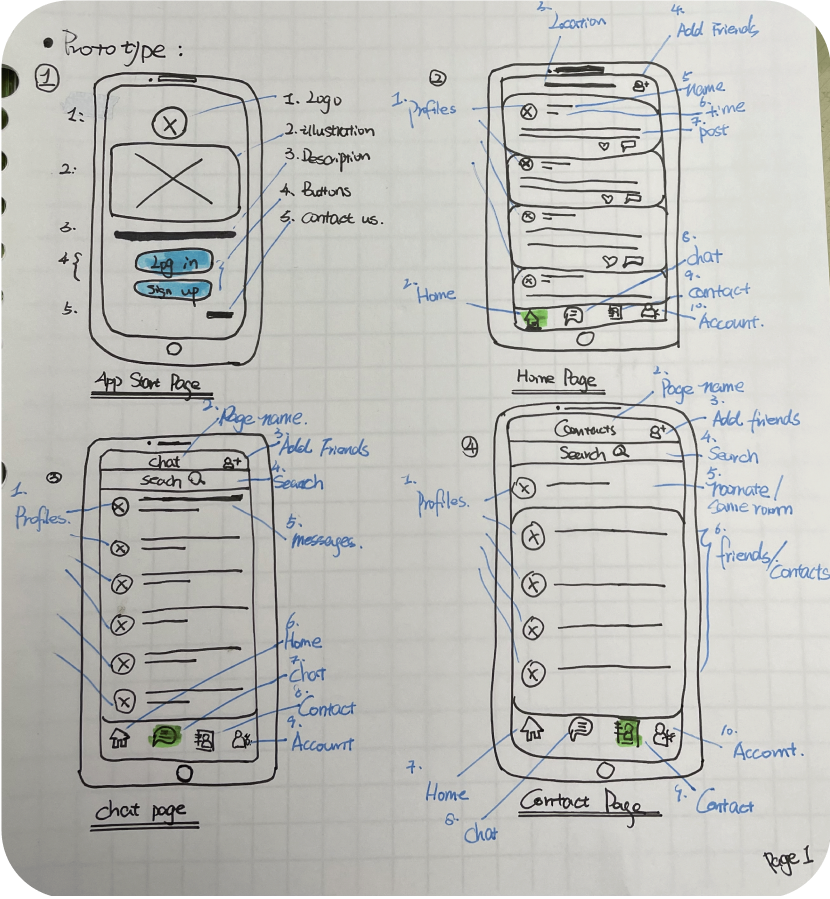 • Prototype :
①
1:
2:
3.
4{
5.
Log in
Sign up
1. Logo
2. illustration
3. Description
4. Buttons
5. Contact us.
App Start Page
②
3. Location
4. Add Friends
1. Profiles
5. name
6. time
7. post
8. chat
9. contact
10. Account.
2. Home
Home Page
③
2. Page name.
3. Add Friends
4. Search
chat
seach
1. Profiles.
5. messages.
6. Home
7. Chat
8. Contact
9. Account
chat page
④
2. Page name
3. Add friends
4. Search
Contacts
Search
1. Profiles
5. roomate/
same room
6. friends/
Contacts
7. Home
8. chat
9. Contact
10. Account.
Contact Page
Page 1